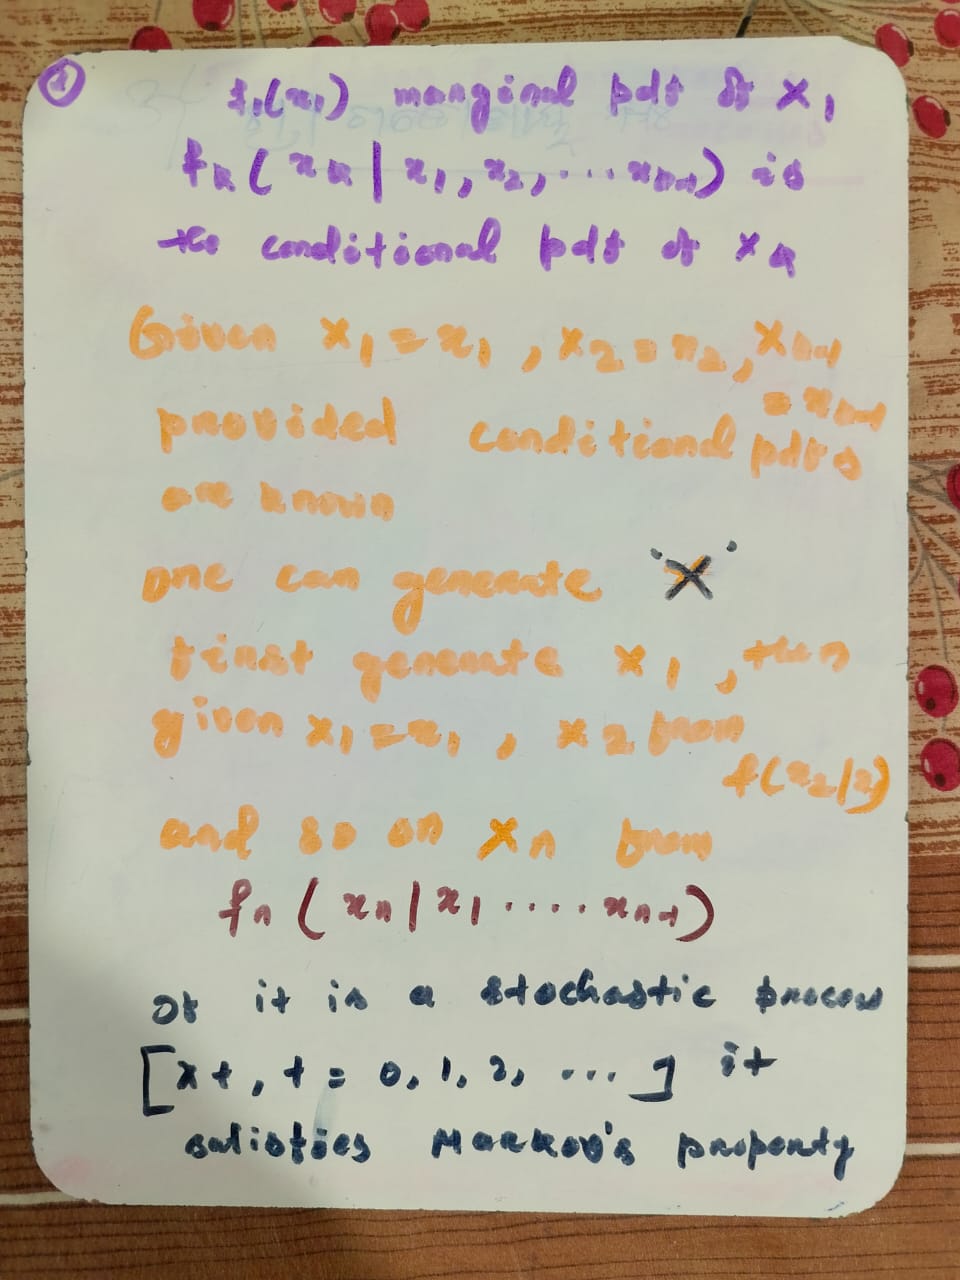 1
f₁(x₁) marginal pdf of X₁
fₖ(xₖ|x₁,x₂,...xₖ₋₁) is
the conditional pdf of Xₖ
Given X₁=x₁, X₂=x₂, Xₖ₋₁
=xₖ₋₁
provided conditional pdfs
are known
one can generate X
first generate X₁, then
given X₁=x₁, X₂ from
f(x₂|x₁)
and so on Xₙ from
fₙ(xₙ|x₁....xₙ₋₁)
If it is a stochastic process
[Xt, t = 0, 1, 2, ...] it
satisfies Markov's property